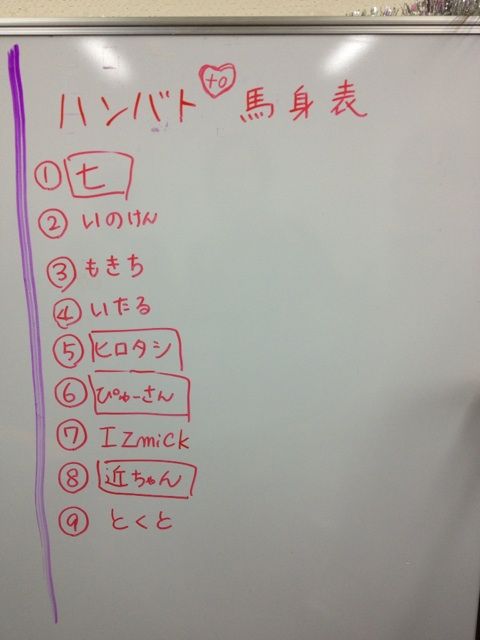 ハンバト to 馬身表
① 七
② いのけん
③ もきち
④ いたる
⑤ ヒロタシ
⑥ ぴゅーさん
⑦ IZmick
⑧ 近ちゃん
⑨ とくと